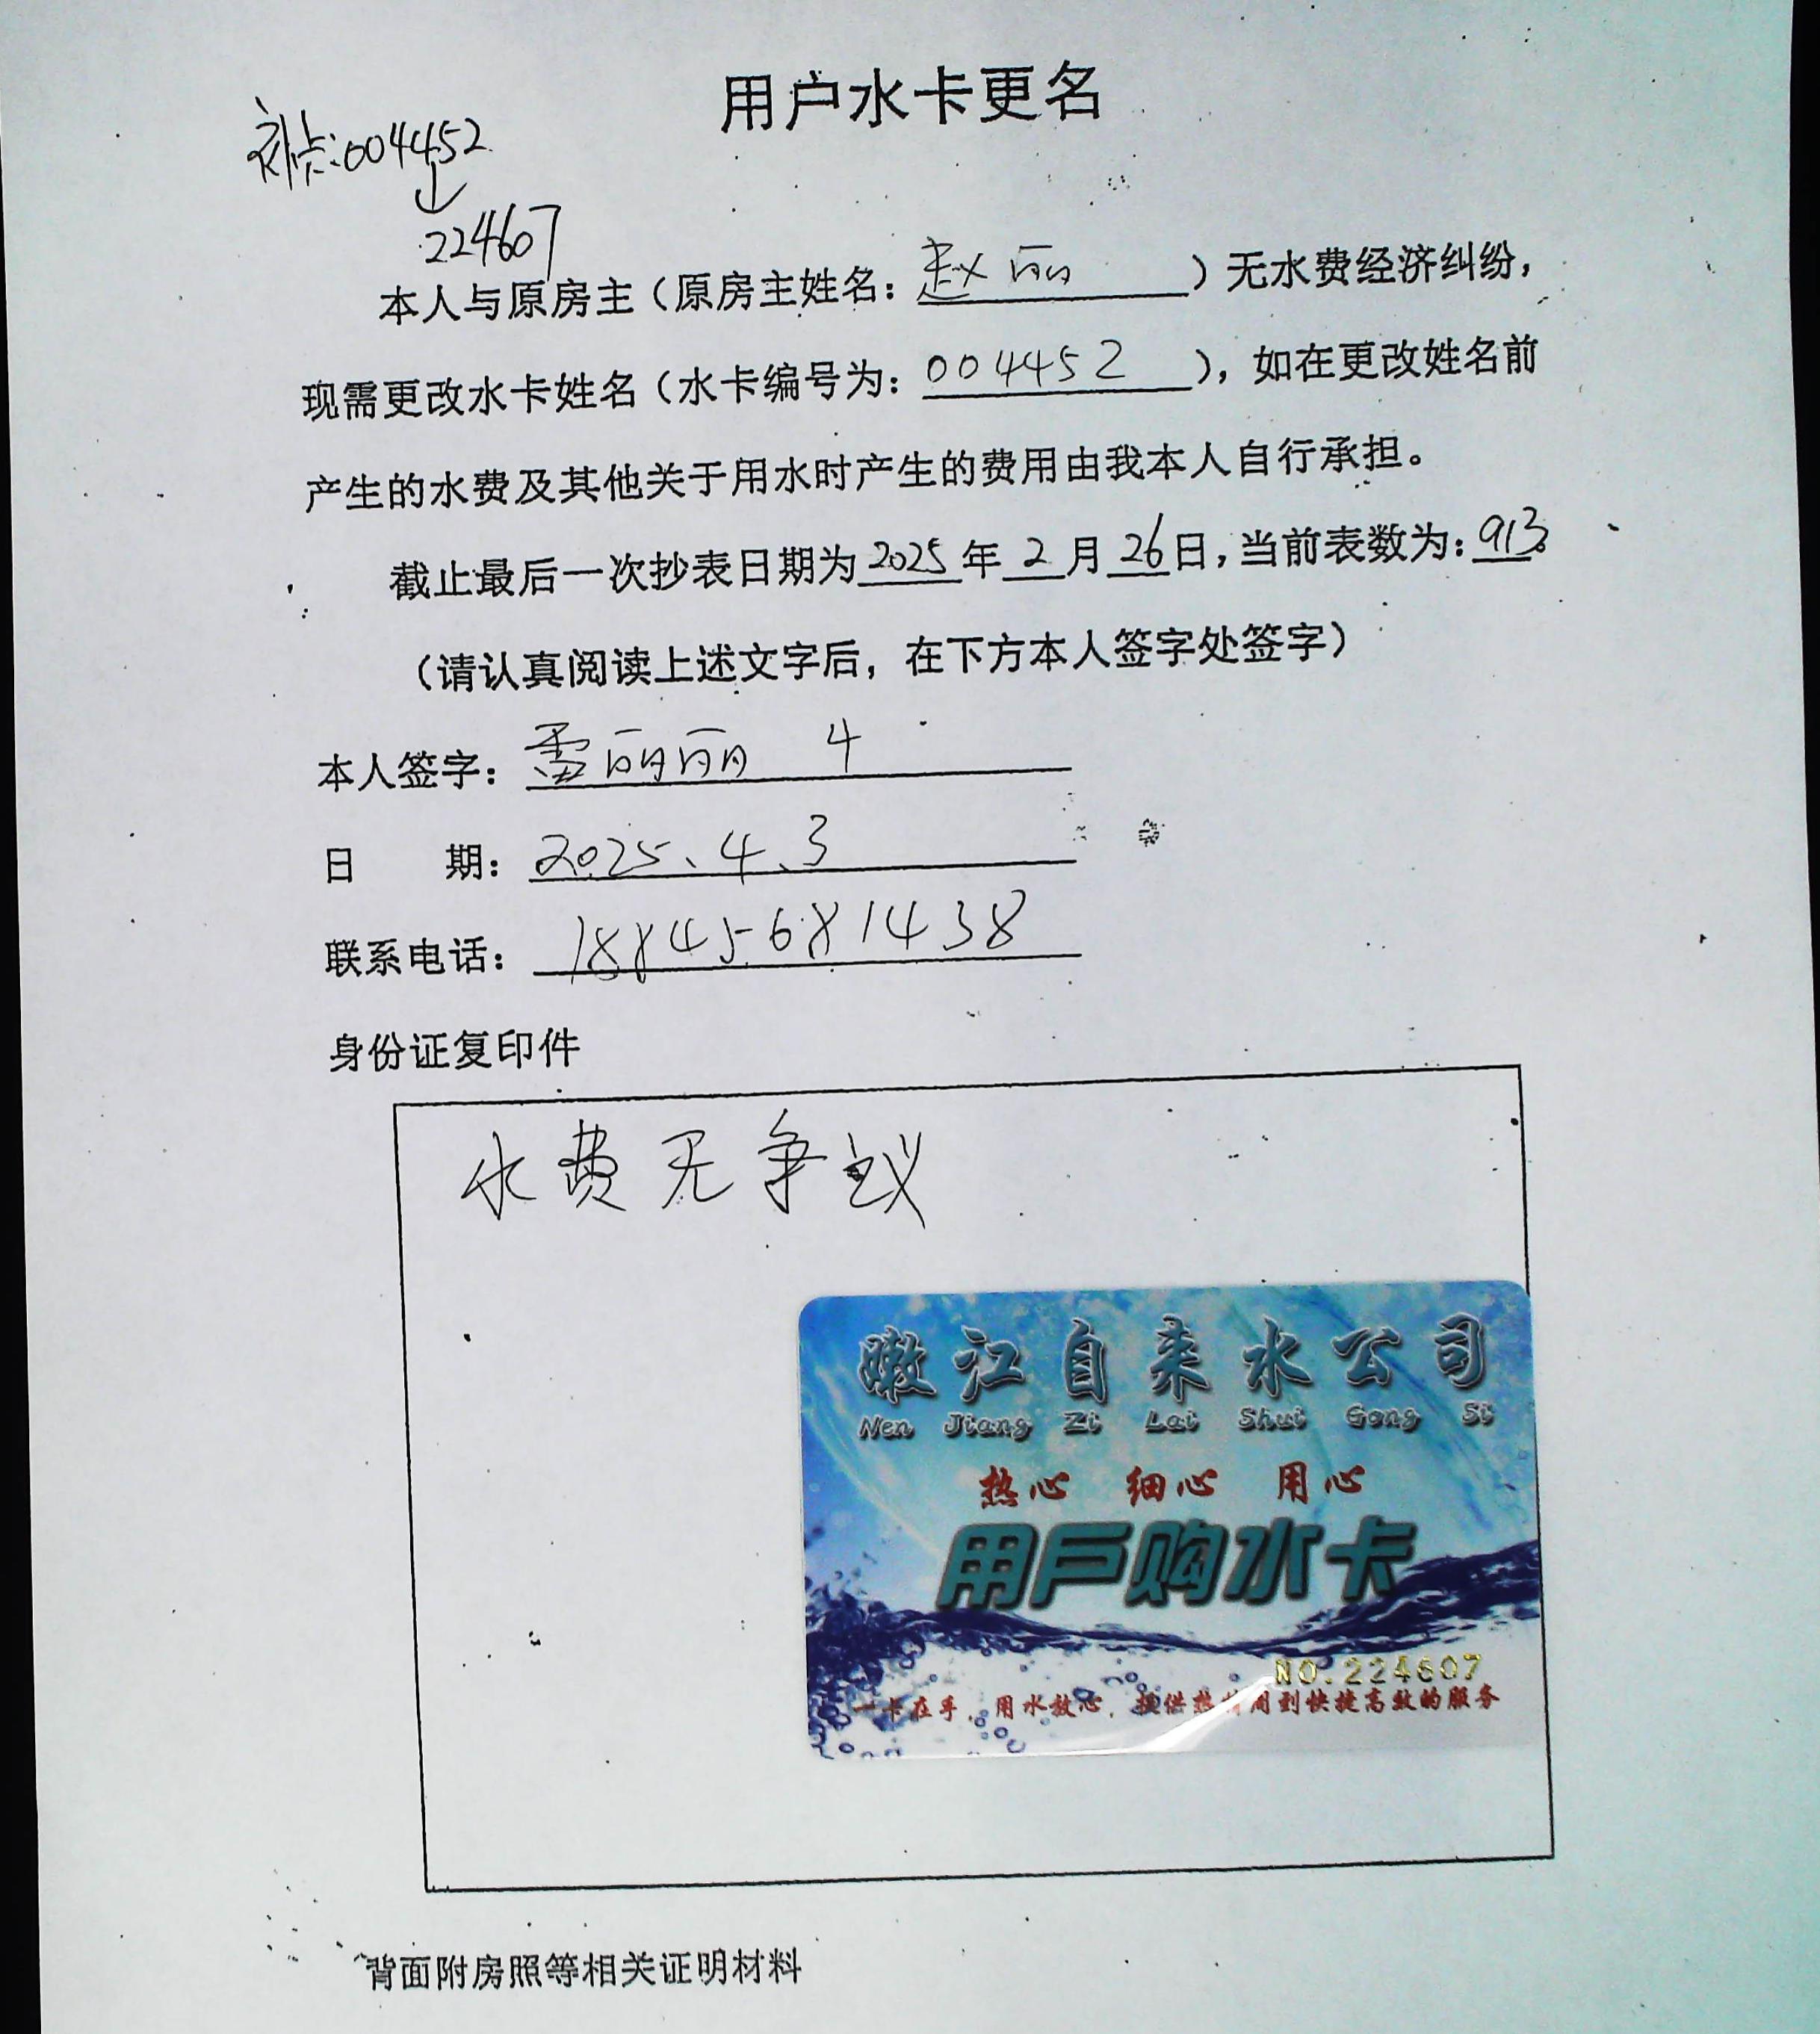 用户水卡更名
补卡:004452
224607
本人与原房主（原房主姓名：赵丽）无水费经济纠纷，
现需更改水卡姓名（水卡编号为：004452），如在更改姓名前
产生的水费及其他关于用水时产生的费用由我本人自行承担。
截止最后一次抄表日期为2025年2月26日，当前表数为：913。
（请认真阅读上述文字后，在下方本人签字处签字）
本人签字：雷丽丽 4
日 期：2025、4、3
联系电话：18845681438
身份证复印件
水费无争议
嫩江自来水公司
Nen Jiang Zi Lai Shui Gong Si
热心 细心 用心
用户购水卡
NO.224607
一卡在手，用水放心，提供热情周到快捷高效的服务
背面附房照等相关证明材料